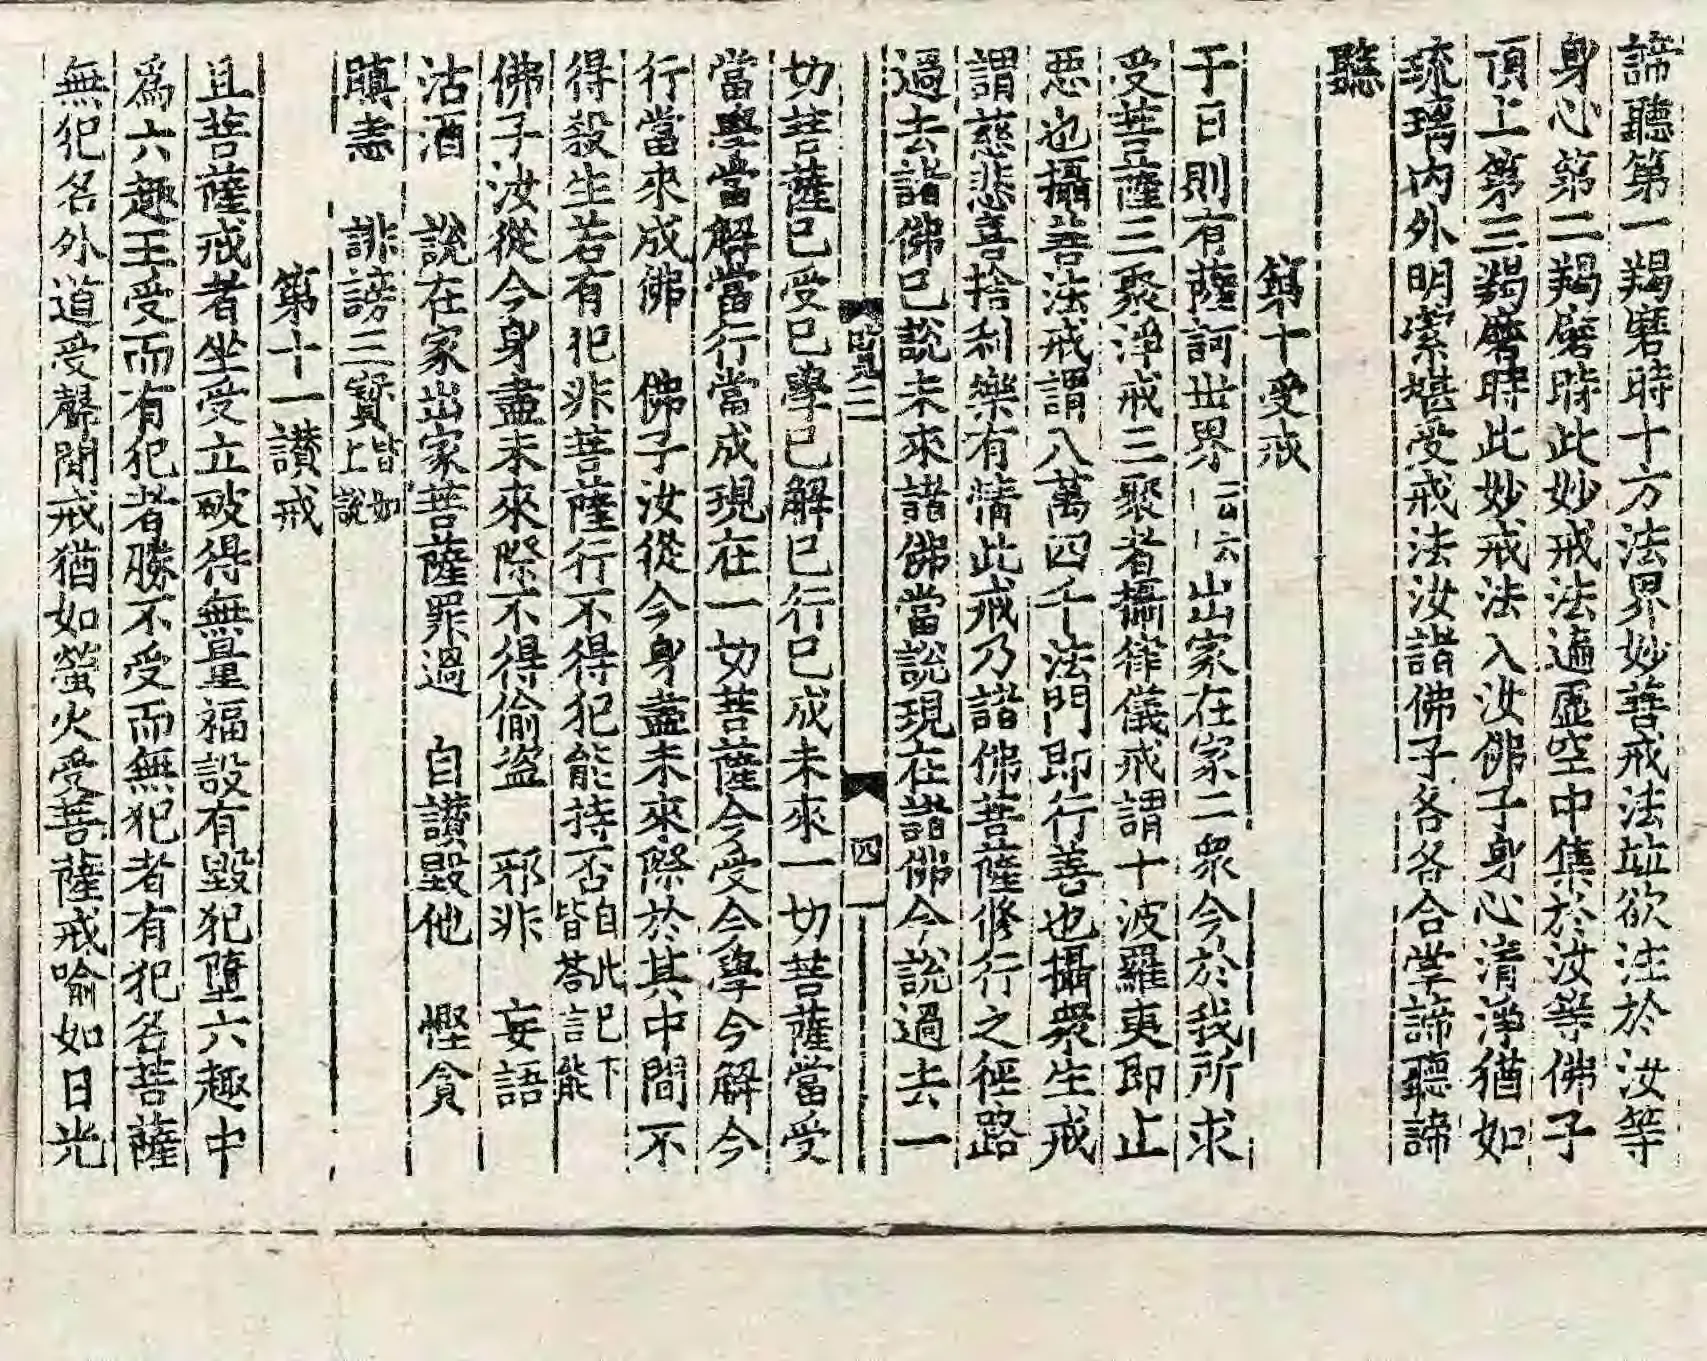 諦聽第一羯磨時十方法界妙善戒法並欲注於汝等
身心第二羯磨時此妙戒法遍虛空中集於汝等佛子
頂上第三羯磨時此妙戒法入汝佛子身心清淨猶如
琉璃內外明瑩堪受戒法汝諸佛子各各合掌諦聽諦
聽
第十受戒
于日則有薩訶世界 一云云 出家在家二衆今於我所求
受菩薩三聚淨戒三聚者攝律儀戒謂十波羅夷即止
惡也攝善法戒謂八萬四千法門即行善也攝衆生戒
謂慈悲喜捨利樂有情此戒乃諸佛菩薩修行之徑路
過去諸佛已說未來諸佛當說現在諸佛今說過去一
四
切菩薩已受已學已解已行已成未來一切菩薩當受
當學當解當行當成現在一切菩薩今受今學今解今
行當來成佛 佛子汝從今身盡未來際於其中間不
得殺生若有犯非菩薩行不得犯能持否皆荅言能自此已下
佛子汝從今身盡未來際不得偷盜 邪非 妄語
沽酒 說在家出家菩薩罪過 自讃毀他 慳貪
瞋恚 誹謗三寶皆如上說
第十一讃戒
且菩薩戒者坐受立破得無量福設有毀犯墮六趣中
爲六趣王受而有犯者勝不受而無犯者有犯名菩薩
無犯名外道受聲聞戒猶如螢火受菩薩戒喻如日光